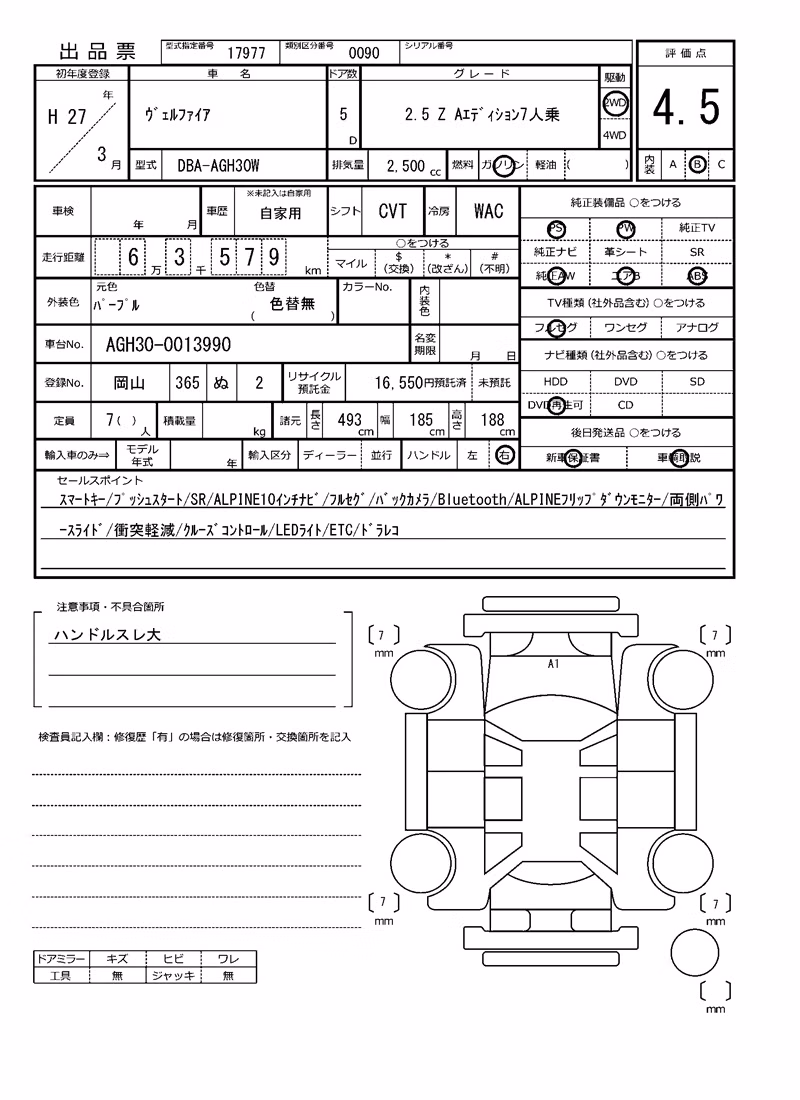 出品票 型式指定番号 17977 類別区分番号 0090 シリアル番号
評価点
4.5
内装 A B C
初年度登録 車名 ドア数 グレード 駆動
H 27 年 3 月
ヴェルファイア 5 D 2.5 Z Aエディション7人乗 2WD
4WD
型式 DBA-AGH30W 排気量 2,500 cc 燃料 ガソリン 軽油 ( )
車検 年 月 車歴 ※未記入は自家用 自家用 シフト CVT 冷房 WAC
走行距離 6 万 3 千 5 7 9 km
○をつける
マイル $ (交換) * (改ざん) # (不明)
外装色 元色 パープル 色替 ( 色替無 ) カラーNo. 内装色
車台No. AGH30-0013990 名変期限 月 日
登録No. 岡山 365 ぬ 2 リサイクル預託金 16,550円預託済 未預託
定員 7( ) 人 積載量 kg 諸元 長さ 493 cm 幅 185 cm 高さ 188 cm
輸入車のみ⇒ モデル年式 年 輸入区分 ディーラー 並行 ハンドル 左 右
純正装備品 ○をつける
PS PW 純正TV
純正ナビ 革シート SR
純正AW エアB ABS
TV種類(社外品含む)○をつける
フルセグ ワンセグ アナログ
ナビ種類(社外品含む)○をつける
HDD DVD SD
DVD再生可 CD
後日発送品 ○をつける
新車保証書 車輌取説
セールスポイント
スマートキー/プッシュスタート/SR/ALPINE10インチナビ/フルセグ/バックカメラ/Bluetooth/ALPINEフリップダウンモニター/両側パワ
ースライド/衝突軽減/クルーズコントロール/LEDライト/ETC/ドラレコ
注意事項・不具合箇所
ハンドルスレ大
検査員記入欄:修復歴「有」の場合は修復箇所・交換箇所を記入
ドアミラー キズ ヒビ ワレ
工具 無 ジャッキ 無
[ 7 ] mm
[ 7 ] mm
A1
[ 7 ] mm
[ 7 ] mm
[ ] mm